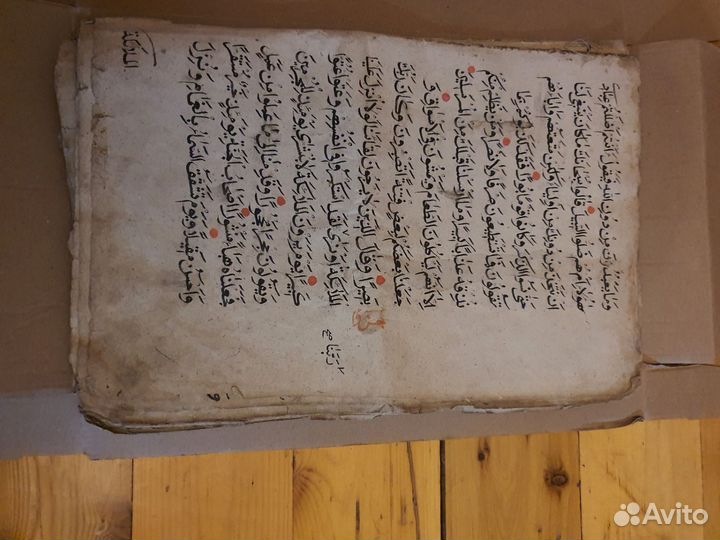 وما يعبدون من دون الله فيقول ءأنتم أضللتم عبادي
هؤلاء أم هم ضلوا السبيل قالوا سبحانك ما كان ينبغي لنا
أن نتخذ من دونك من أولياء ولكن متعتهم وآباءهم
حتى نسوا الذكر وكانوا قوما بورا فقد كذبوكم بما
تقولون فما تستطيعون صرفا ولا نصرا ومن يظلم منكم
نذقه عذابا كبيرا وما أرسلنا قبلك من المرسلين
إلا إنهم ليأكلون الطعام ويمشون في الأسواق و
جعلنا بعضكم لبعض فتنة أتصبرون وكان ربك
بصيرا وقال الذين لا يرجون لقاءنا لولا أنزل علينا
الملائكة أو نرى ربنا لقد استكبروا في أنفسهم وعتوا عتوا
كبيرا يوم يرون الملائكة لا بشرى يومئذ للمجرمين
ويقولون حجرا محجورا وقدمنا إلى ما عملوا من عمل
فجعلناه هباء منثورا أصحاب الجنة يومئذ خير مستقرا
وأحسن مقيلا ويوم تشقق السماء بالغمام ونزل
الملائكة
Avito